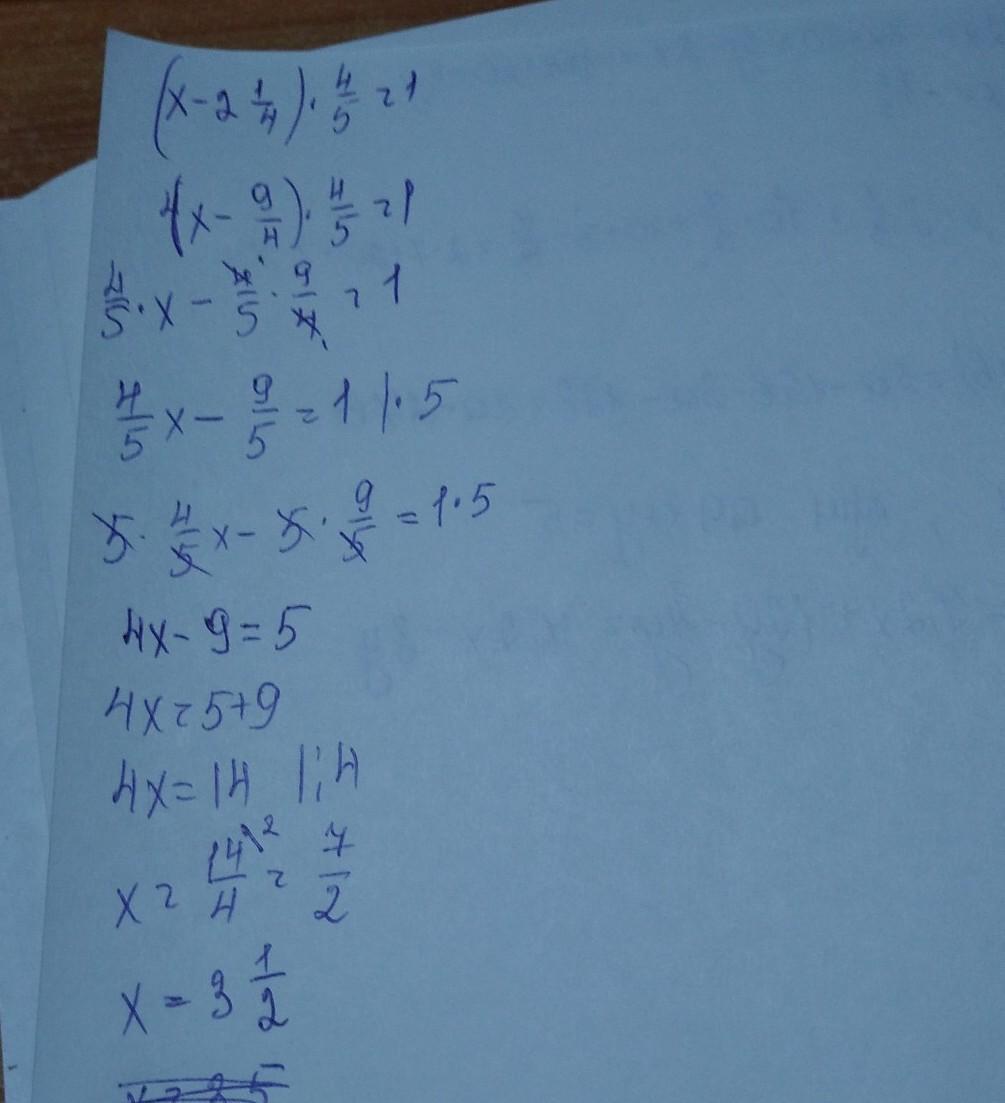 (x - 2 1/4) · 4/5 = 1
(x - 9/4) · 4/5 = 1
4/5 · x - 4/5 · 9/4 = 1
4/5 x - 9/5 = 1 | · 5
5 · 4/5 x - 5 · 9/5 = 1 · 5
4x - 9 = 5
4x = 5 + 9
4x = 14 | : 4
x = 14/4 \2 = 7/2
x = 3 1/2